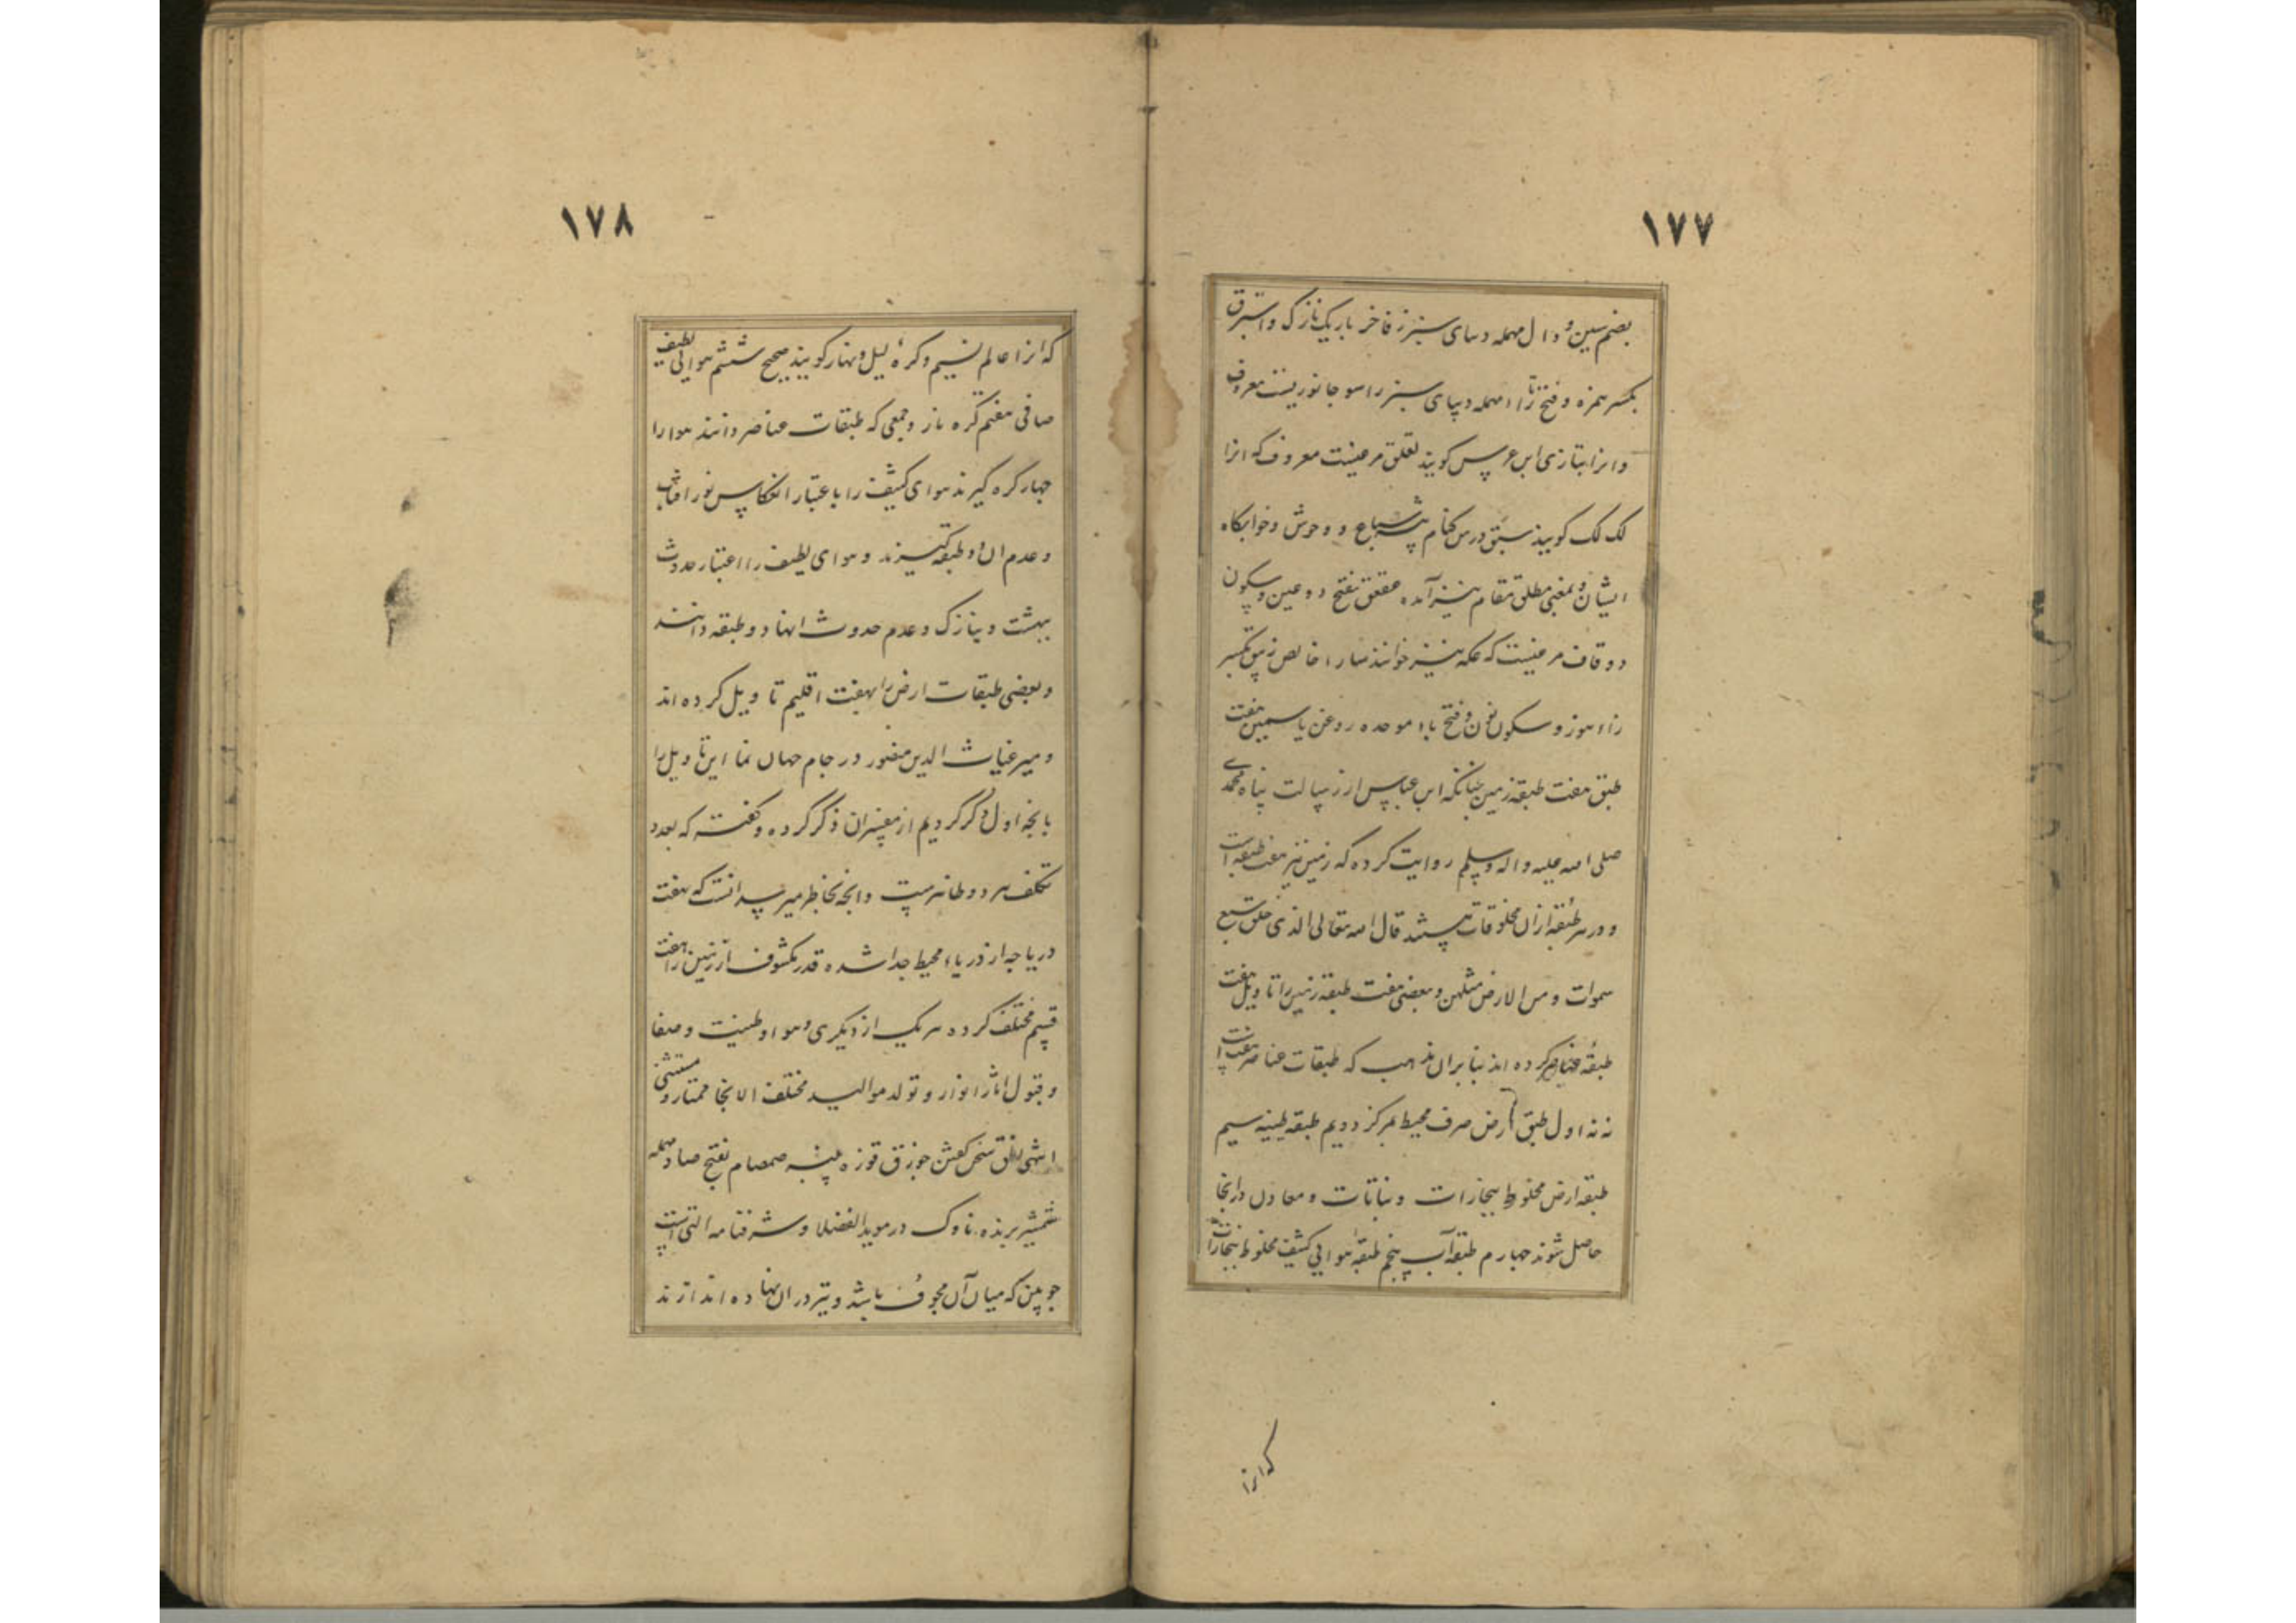 ۱۷۷
بضم سین و دال مهمله دیبای سبز فاخر باریک نازک و استبرق
بکسر همزه و فتح را مهمله دیبای سبز راسو جانوریست معروف
و انرا بتازی ابن عرس کویند لقلق مرغیست معروف که انرا
لک لک کویند سبق درس کنام بیشه سباع و وحوش و خوابکاه
ایشان و بمعنی مطلق مقام نیز آمده عقعق بفتح دو عین و سکون
دو قاف مرغیست که عکه نیز خوانند سارا خالص زنبق بکسر
زاء هوز و سکون نون و فتح باء موحده روغن یاسمین هفت
طبق هفت طبقه زمین چنانکه ابن عباس از رسالت پناه محمدی
صلی الله علیه و اله وسلم روایت کرده که زمین نیز هفت طبقه است
و در هر طبقه ازان مخلوقات هستند قال الله تعالی الذی خلق سبع
سموات و من الارض مثلهن و بعضی هفت طبقه زمین را تاویل بهفت
طبقهٔ عناصر کرده اند بنا بران مذهب که طبقات عناصر هفت است
نه نه اول طبق ارض صرف محیط بمرکز دویم طبقه طینیه سیم
طبقه ارض مخلوط ببخارات و نباتات و معادن درانجا
حاصل شوند چهارم طبقه آب پنجم طبقهٔ هوایی کثیف مخلوط ببخارات
که انرا
۱۷۸
که انرا عالم نسیم و کرهٔ لیل و نهار کویند صحیح ششم هوایی لطیف
صافی هفتم کره نار و جمعی که طبقات عناصر دانند هوا را
چهار کره کیرند هوای کثیف را باعتبار انعکاس نور افتاب
و عدم ان دو طبقه کیرند و هوای لطیف را اعتبار حدوث
و نیازک و عدم حدوث انها دو طبقه دانند
و بعضی طبقات ارض را بهفت اقلیم تاویل کرده اند
و میر غیاث الدین منصور در جام جهان نما این تاویل را
بانچه اول ذکر کردیم از مفسران ذکر کرده و کفته که بعد و
تکلف هر دو ظاهرست و انچه بخاطر میرسد انست که هفت
دریاچه از دریاء محیط جدا شده قدر مکشوف از زمین را هفت
قسم مختلف کرده هر یک از دیکری و هوا و طینت و صفا
و قبول اثار انوار و تولد موالید مختلف الانحا ممتاز و مستثنی
انتهی نطق سخن کفتن جوزق قوزه پنبه صمصام بفتح صاد مهمله
شمشیر برنده ناوک در موید الفضلا و شرفنامه التی است
چوبین که میان آن مجوف باشد و تیر دران نهاده اندازند